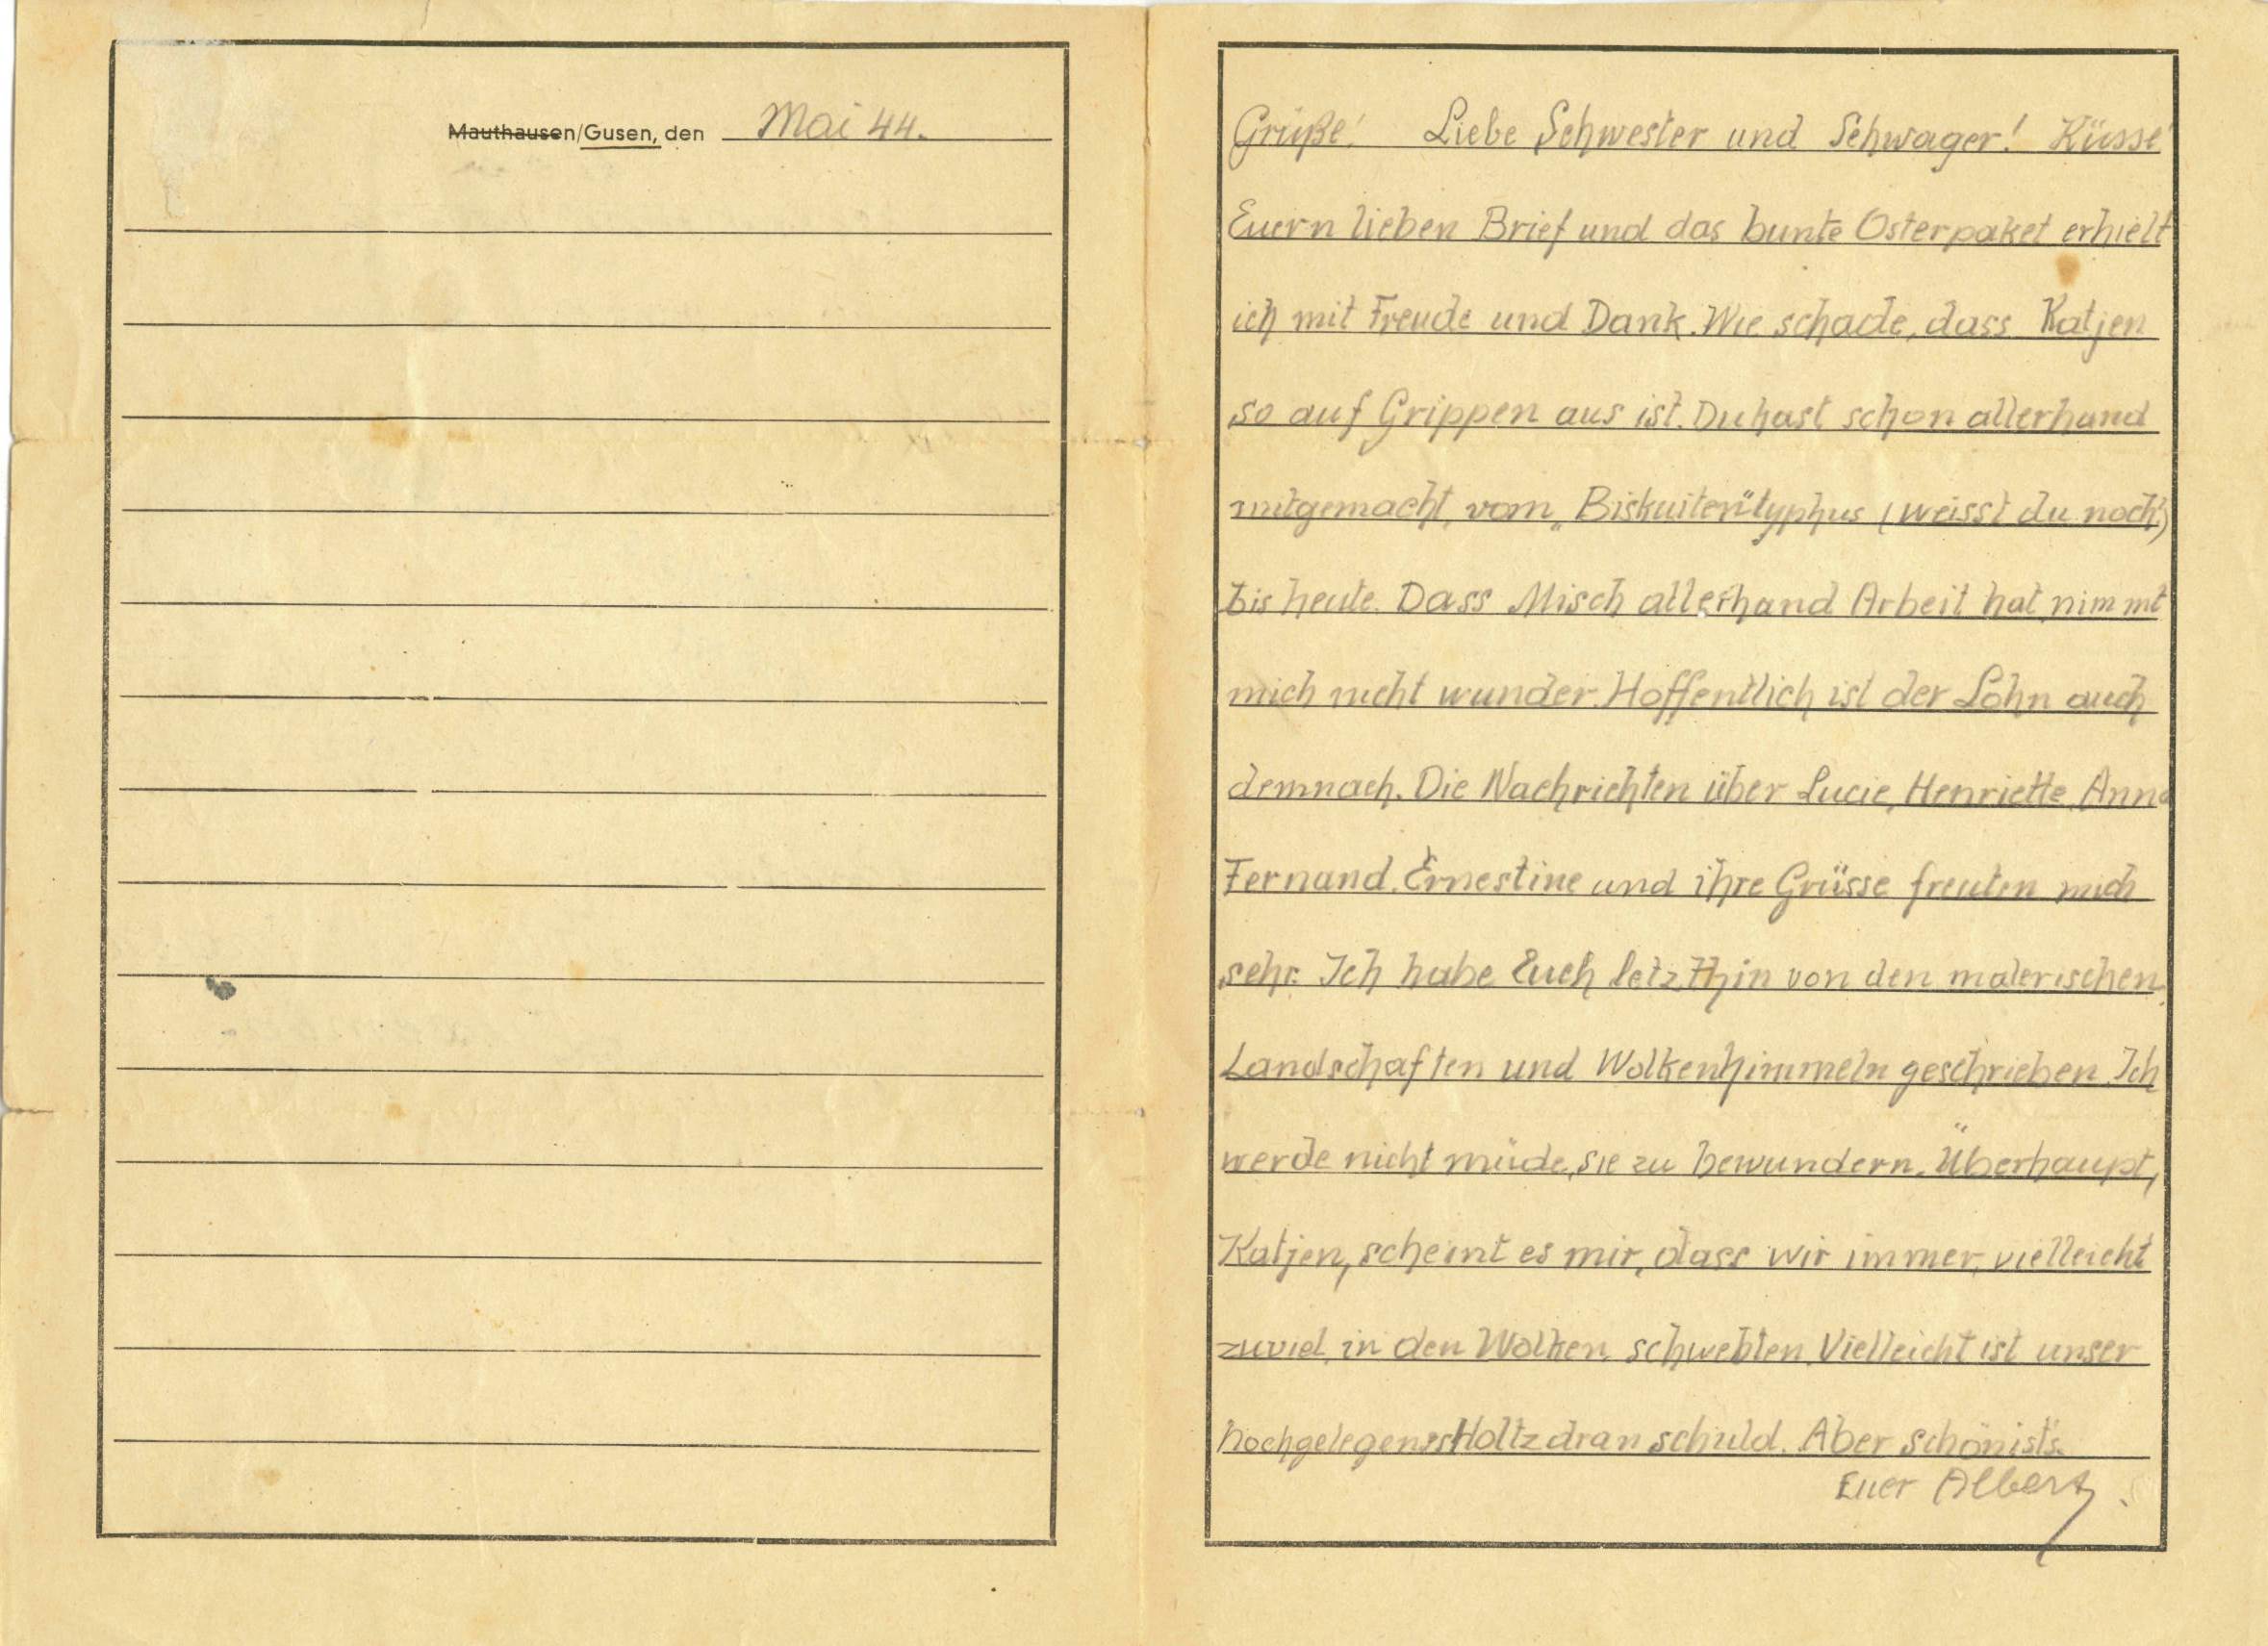 Mauthausen/Gusen, den Mai 44.
Grüße! Liebe Schwester und Schwager! Küsse!
Euern lieben Brief und das bunte Osterpaket erhielt
ich mit Freude und Dank. Wie schade, dass Katjen
so auf Grippen aus ist. Du hast schon allerhand
mitgemacht, vom „Biskuiten"typhus (weisst du noch)
bis heute. Dass Misch allerhand Arbeit hat, nimmt
mich nicht wunder. Hoffentlich ist der Lohn auch
demnach. Die Nachrichten über Lucie, Henriette, Anna
Fernand, Ernestine und ihre Grüsse freuten mich
sehr. Ich habe Euch letzthin von den malerischen
Landschaften und Wolkenhimmeln geschrieben. Ich
werde nicht müde, sie zu bewundern. Überhaupt,
Katjen, scheint es mir, dass wir immer, vielleicht
zuviel, in den Wolken schwebten. Vielleicht ist unser
hochgelegenes Holtz dran schuld. Aber schön ists.
Euer Albert.